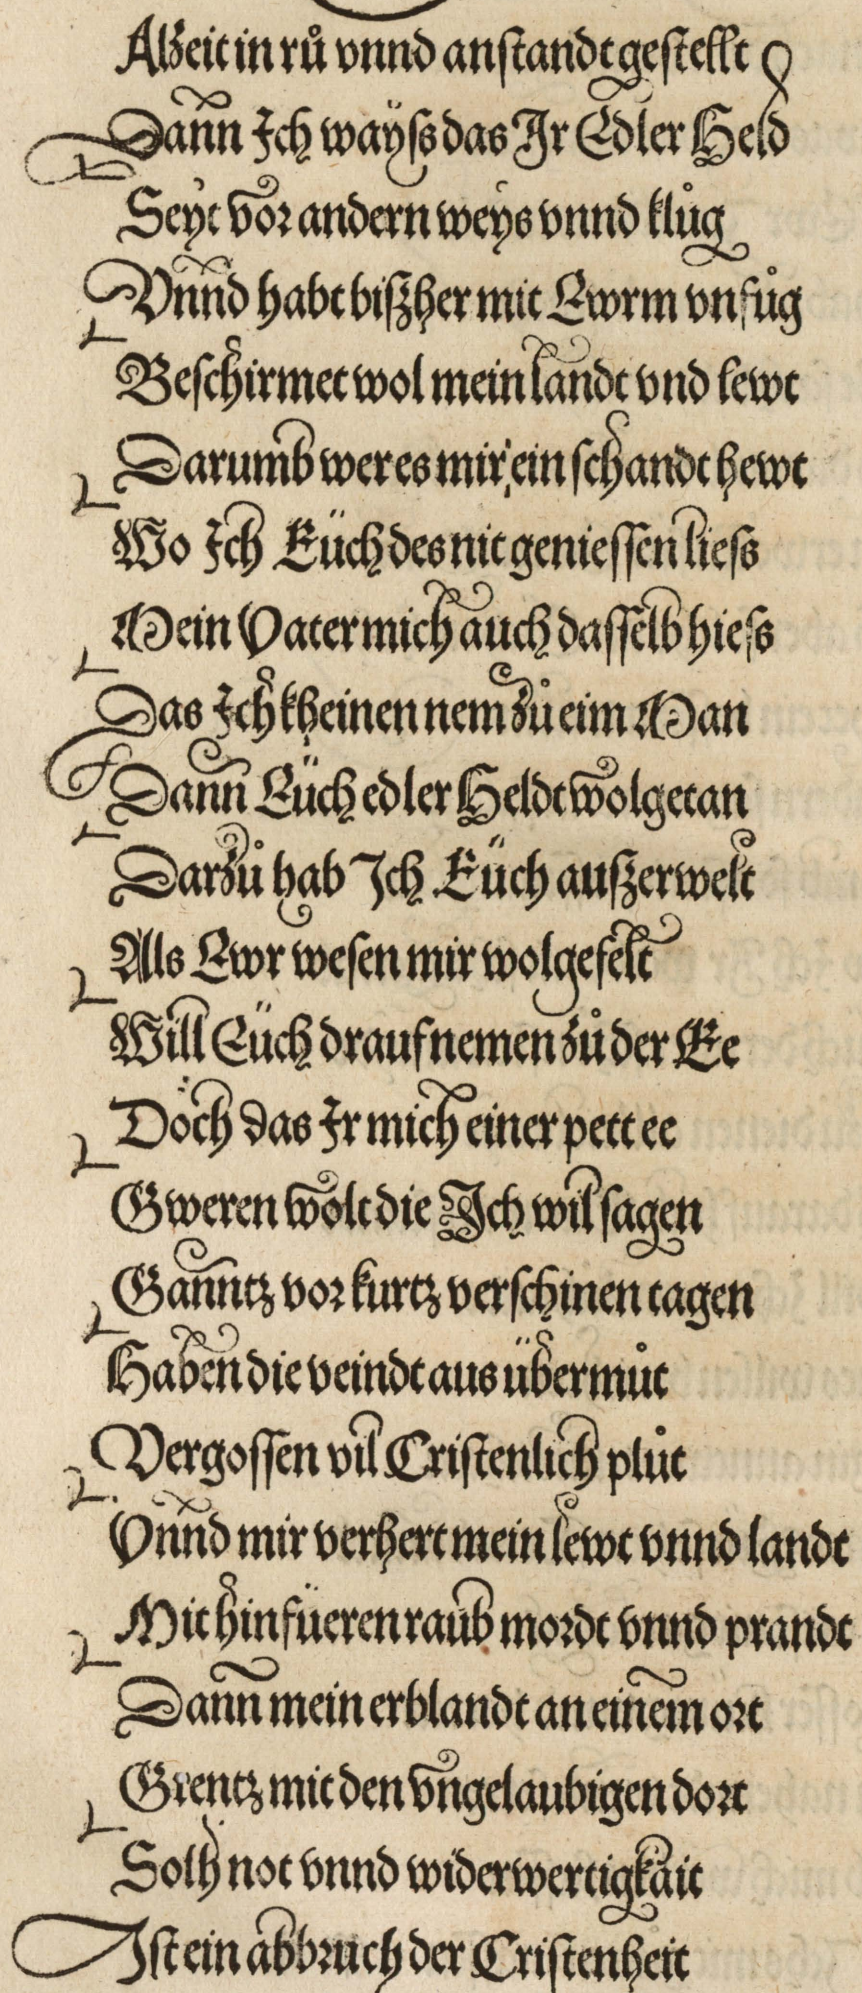 Alzeit in rů vnnd anstandt gestellt
Dann Ich wayſs das Ir Edler Held
Seyt vor andern weys vnnd klůg
Vnnd habt biſzher mit Ewrm vnfůg
Beſchirmet wol mein landt vnd lewt
Darumb wer es mir ein ſchandt hewt
Wo Ich Eüch des nit genieſſen lieſs
Mein Vater mich auch daſſelb hieſs
Das Ich kheinen nem zů eim Man
Dann Eüch edler Heldt wolgetan
Darzů hab Ich Eüch auſzerwelt
Als Ewr weſen mir wolgefelt
Will Eüch drauf nemen zů der Ee
Doch das Ir mich einer pett ee
Gweren wolt die Ich wil ſagen
Ganntz vor kurtz verſchinen tagen
Haben die veindt aus übermůt
Vergoſſen vil Criſtenlich plůt
Vnnd mir verhert mein lewt vnnd landt
Mit hinfüeren raub mordt vnnd prandt
Dann mein erblandt an einem ort
Grentz mit den vngelaubigen dort
Solh not vnnd widerwertigkait
Iſt ein abbruch der Criſtenheit